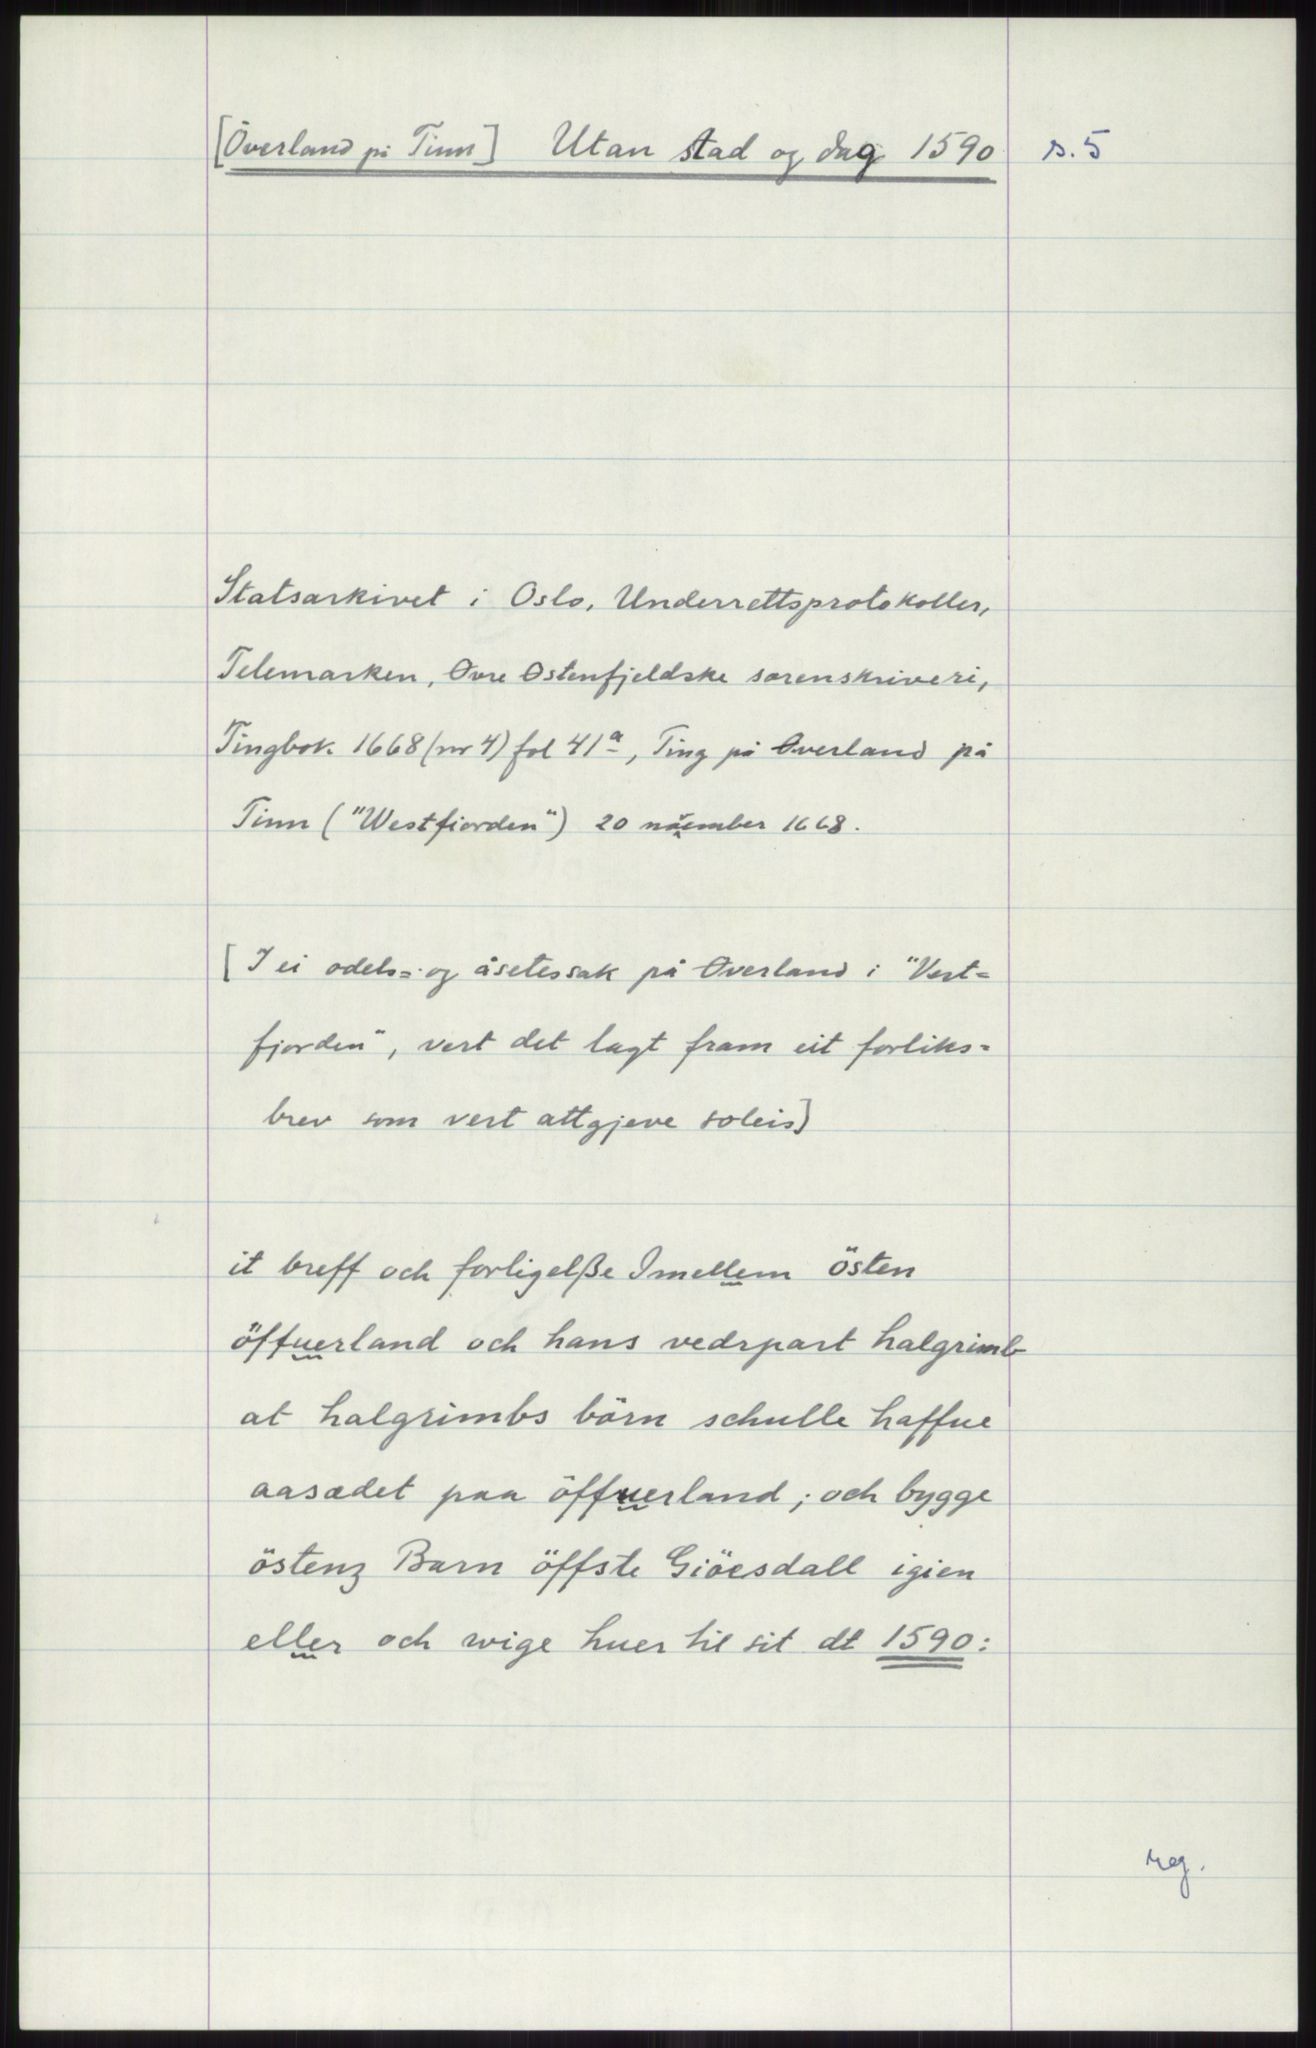 [Överland på Tinn] Utan stad og dag 1590 s. 5
Statsarkivet i Oslo, Underrettsprotokoller,
Telemarken, Øvre Østenfjeldske sorenskriveri,
Tingbok 1668 (nr 4) fol 41a, Ting på Øverland på
Tinn ("Westfiorden") 20 november 1668.
[I ei odels= og åsetessak på Øverland i "Vest=
fjorden", vert det lagt fram eit forliks=
brev som vert attgjeve soleis]
it breff och forligelße Imellem östen
öffuerland och hans vedrpart halgrimb
at halgrimbs börn schulle haffue
aasædet paa öffuerland; och bygge
östenz Barn öffste Giöesdall igien
eller och wige huer til sit dt 1590:
reg.